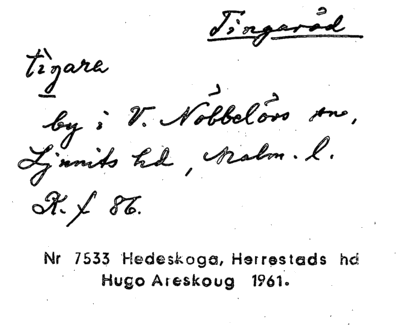 Tingaröd
tìgara
by i V. Nöbbelövs sn,
Ljunits hd, Malm. l.
K. f 86.
Nr 7533 Hedeskoga, Herrestads hd
Hugo Areskoug 1961.